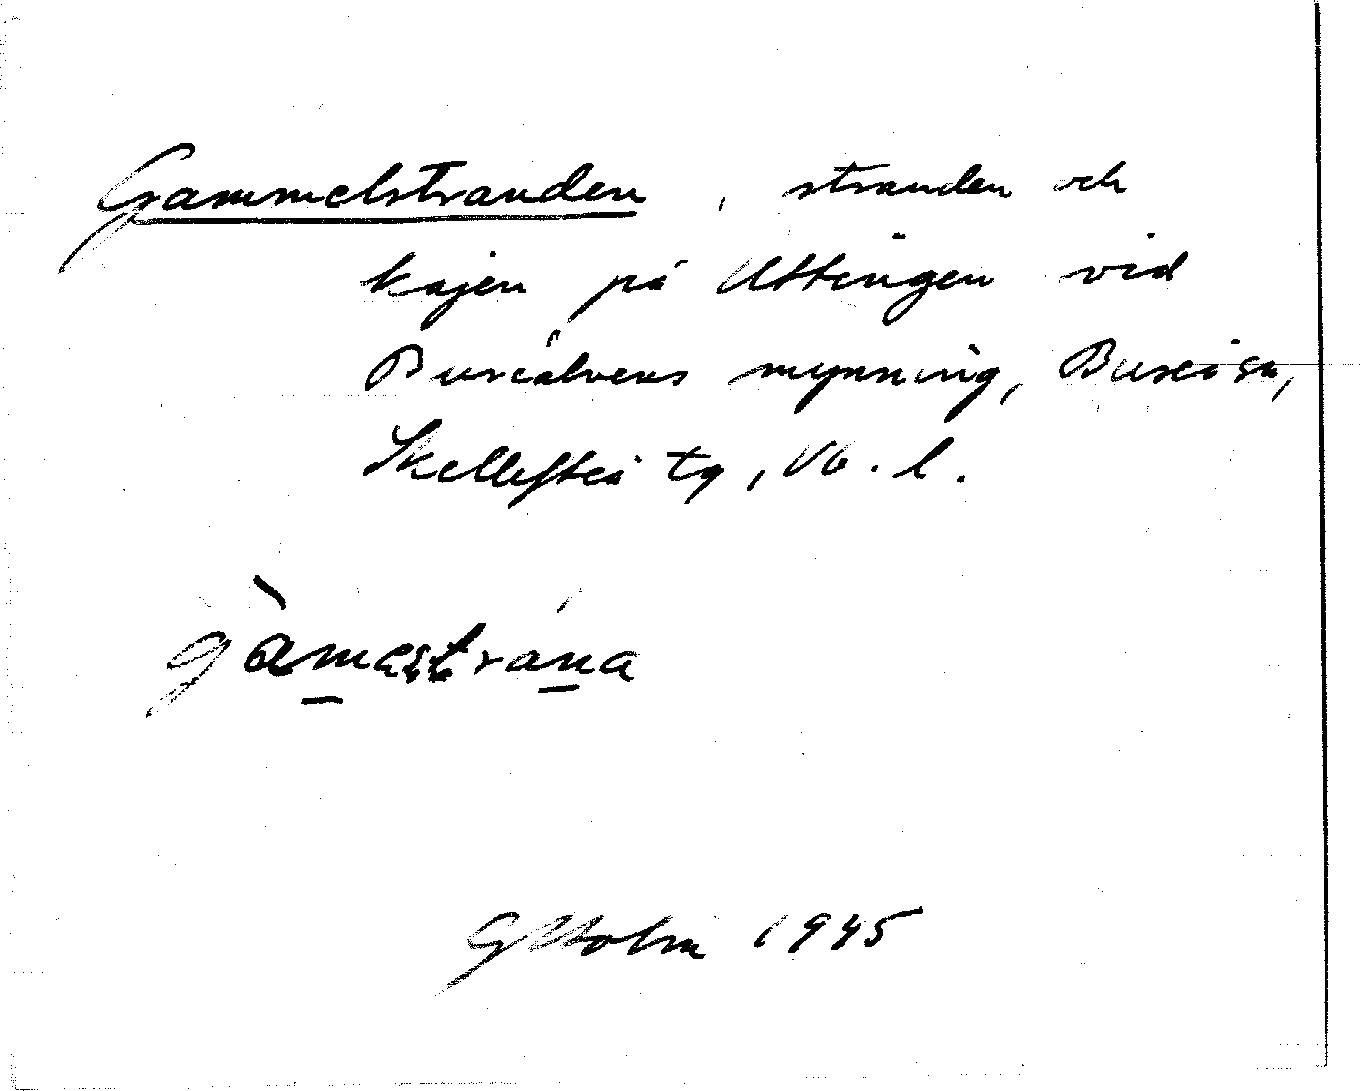 Gammelstranden, stranden och
kajen på Uttingen vid
Bureälvens mynning, Bureå sn,
Skellefteå tg, Vb. l.
gàmestrána
G Holm 1945